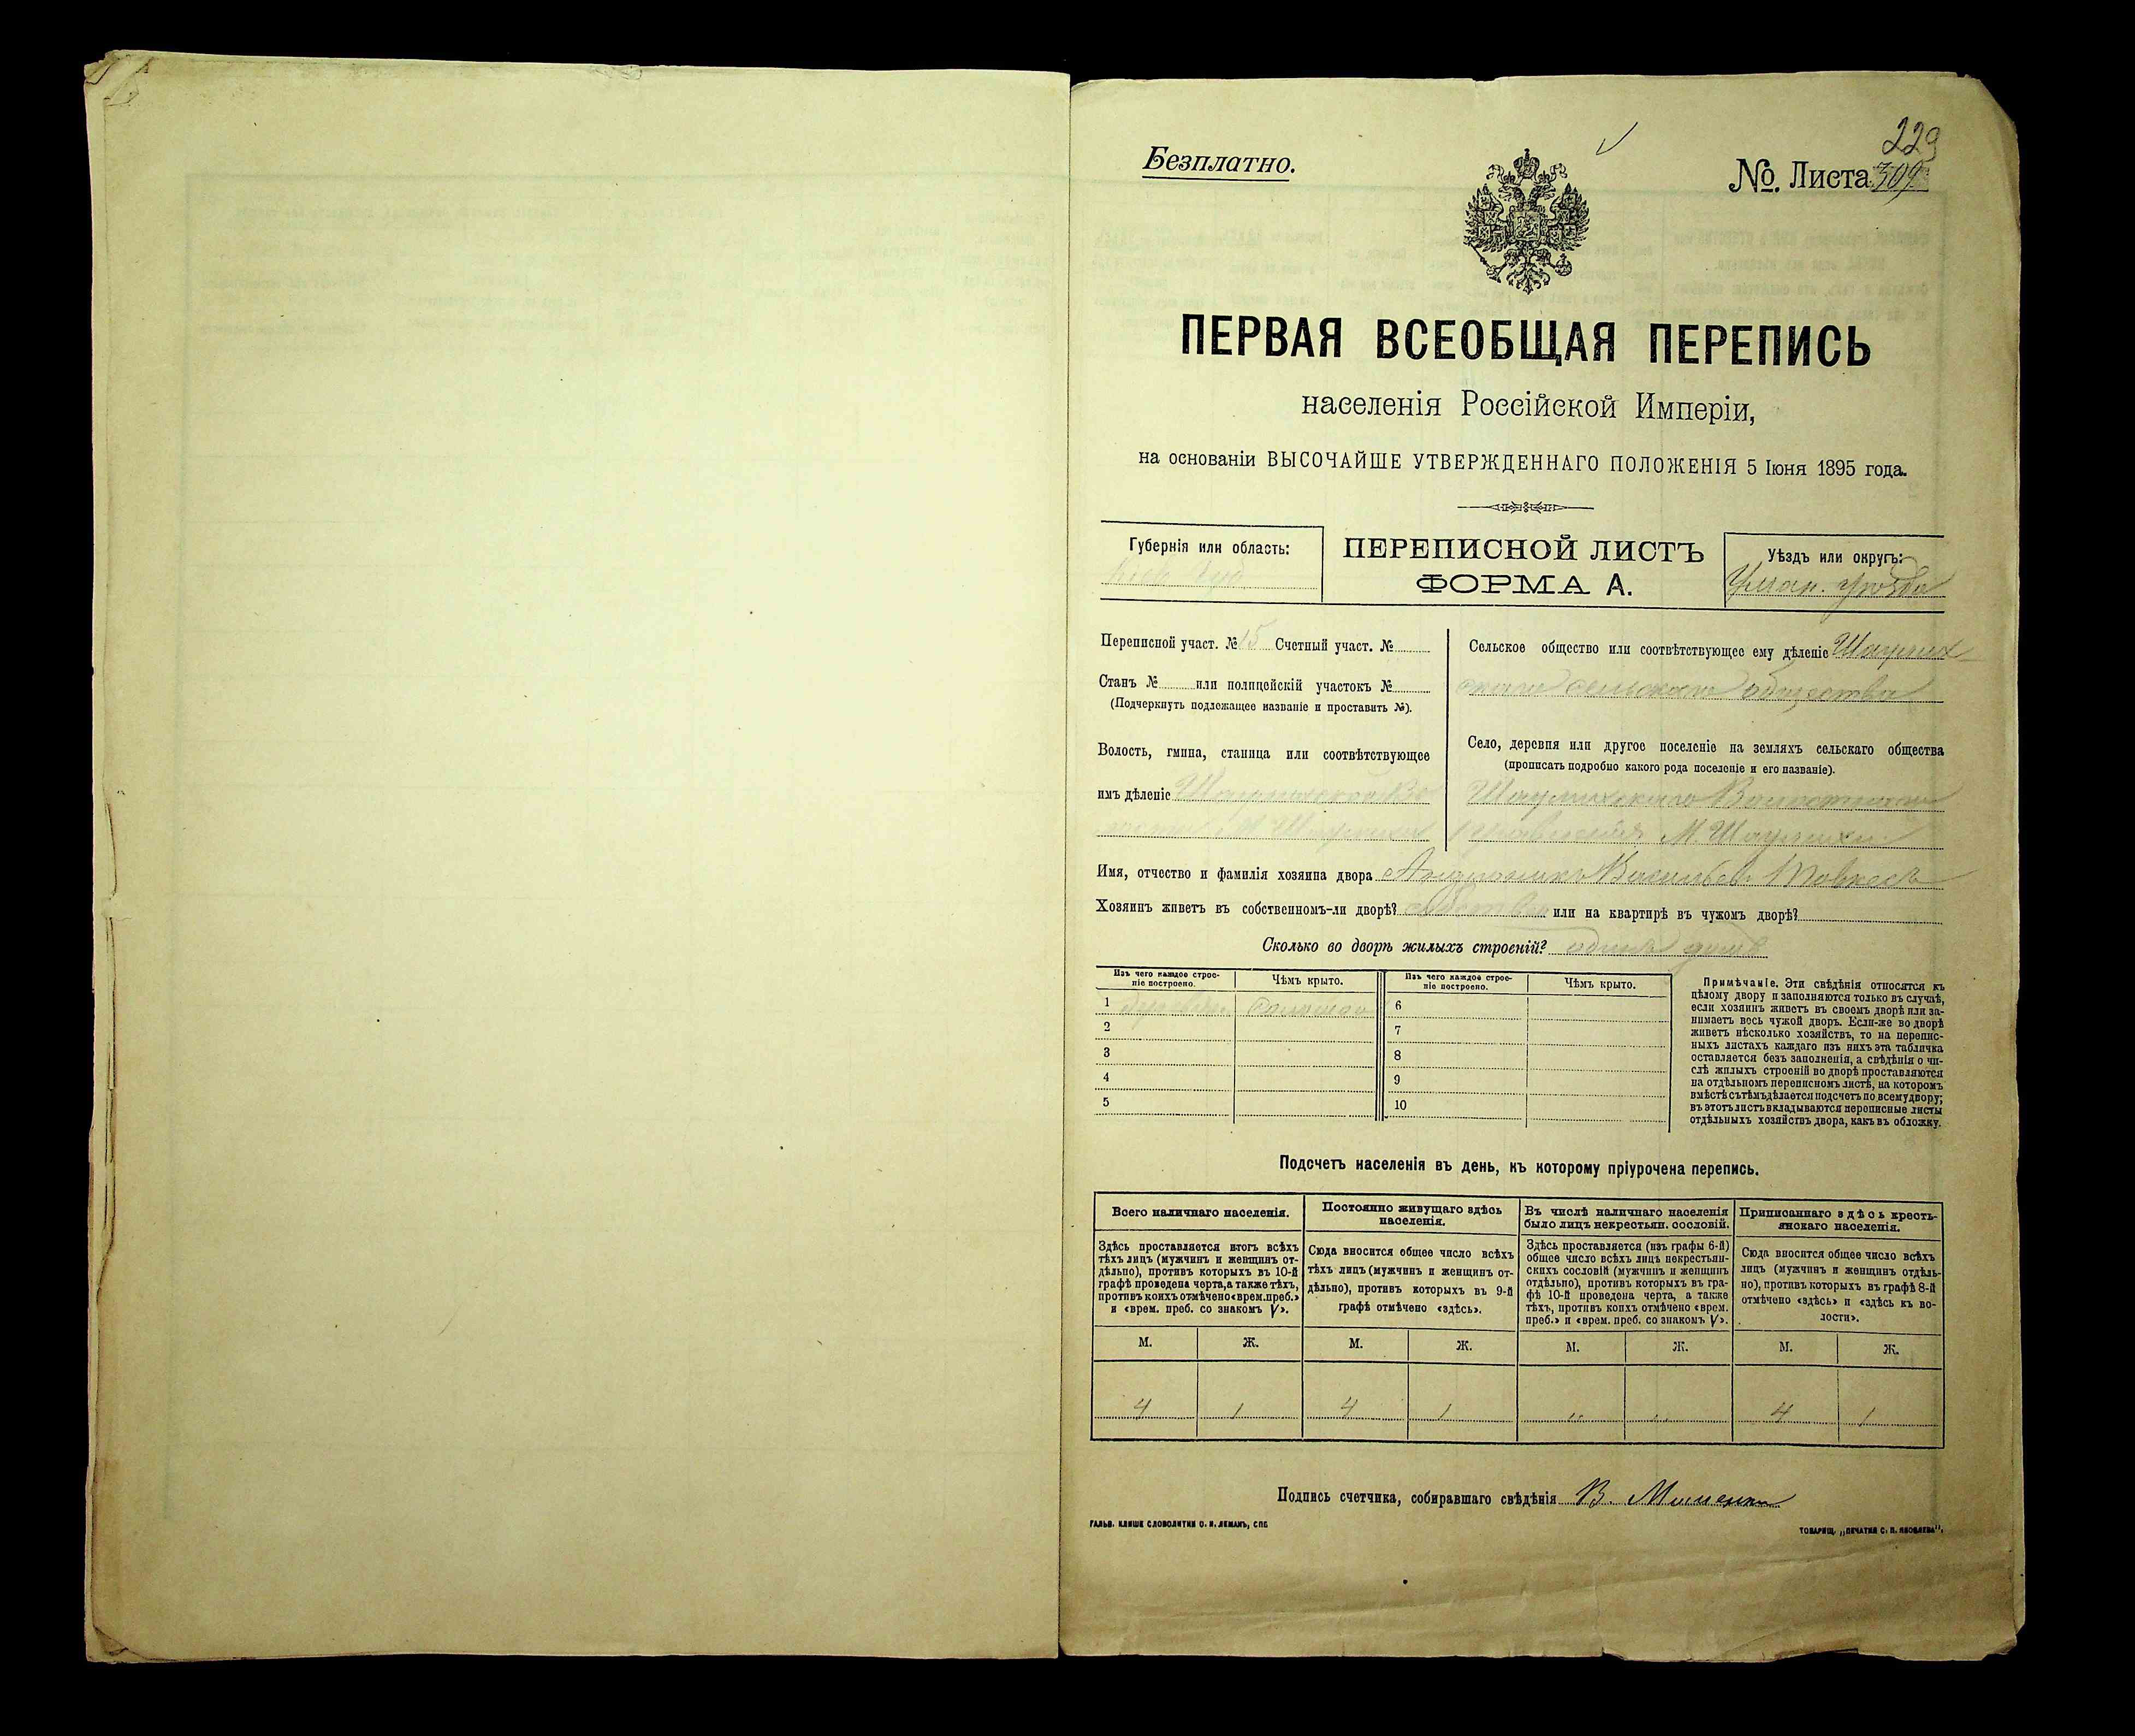 229
Безплатно.
№. Листа 309
ПЕРВАЯ ВСЕОБЩАЯ ПЕРЕПИСЬ
населенія Россійской Имперіи,
на основаніи ВЫСОЧАЙШЕ УТВЕРЖДЕННАГО ПОЛОЖЕНІЯ 5 Іюня 1895 года.
Губернія или область:
Кіев. Губ.
ПЕРЕПИСНОЙ ЛИСТЪ
ФОРМА А.
Уѣздъ или округъ:
Уман. уѣзда
Переписной участ. № 15 Счетный участ. №
Станъ № или полицейскій участокъ №
(Подчеркнуть подлежащее названіе и проставить №).
Волость, гмина, станица или соотвѣтствующее
имъ дѣленіе
Сельское общество или соотвѣтствующее ему дѣленіе Шаулих
скаго сельскаго общества
Село, деревня или другое поселеніе на земляхъ сельскаго общества
(прописать подробно какого рода поселеніе и его названіе).
Шаулихскаго Волостнаго
Правленія М. Шаулихи
Имя, отчество и фамилія хозяина двора Васильев
Хозяинъ живетъ въ собственномъ-ли дворѣ? или на квартирѣ въ чужомъ дворѣ?
Сколько во дворѣ жилыхъ строеній? одинъ домъ
Изъ чего каждое строе-
ніе построено.
Чѣмъ крыто.
Изъ чего каждое строе-
ніе построено.
Чѣмъ крыто.
1 Соломою 6
2 7
3 8
4 9
5 10
Примѣчаніе. Эти свѣдѣнія относятся къ
цѣлому двору и заполняются только въ случаѣ,
если хозяинъ живетъ въ своемъ дворѣ или за-
нимаетъ весь чужой дворъ. Если-же во дворѣ
живетъ нѣсколько хозяйствъ, то на перепис-
ныхъ листахъ каждаго изъ нихъ эта табличка
оставляется безъ заполненія, а свѣдѣнія о чи-
слѣ жилыхъ строеній во дворѣ проставляются
на отдѣльномъ переписномъ листѣ, на которомъ
вмѣстѣ съ тѣмъ дѣлается подсчетъ по всему двору;
въ этотъ листъ вкладываются переписные листы
отдѣльныхъ хозяйствъ двора, какъ въ обложку.
Подсчетъ населенія въ день, къ которому пріурочена перепись.
Всего наличнаго населенія.
Здѣсь проставляется итогъ всѣхъ
тѣхъ лицъ (мужчинъ и женщинъ от-
дѣльно), противъ которыхъ въ 10-й
графѣ проведена черта, а также тѣхъ,
противъ коихъ отмѣчено «врем. преб.»
и «врем. преб. со знакомъ V».
Постоянно живущаго здѣсь
населенія.
Сюда вносится общее число всѣхъ
тѣхъ лицъ (мужчинъ и женщинъ от-
дѣльно), противъ которыхъ въ 9-й
графѣ отмѣчено «здѣсь».
Въ числѣ наличнаго населенія
было лицъ некрестьян. сословій.
Здѣсь проставляется (изъ графы 6-й)
общее число всѣхъ лицъ некрестьян-
скихъ сословій (мужчинъ и женщинъ
отдѣльно), противъ которыхъ въ гра-
фѣ 10-й проведена черта, а также
тѣхъ, противъ коихъ отмѣчено «врем.
преб.» и «врем. преб. со знакомъ V».
Приписаннаго здѣсь кресть-
янскаго населенія.
Сюда вносится общее число всѣхъ
лицъ (мужчинъ и женщинъ отдѣль-
но), противъ которыхъ въ графѣ 8-й
отмѣчено «здѣсь» и «здѣсь къ во-
лости».
М. Ж. М. Ж. М. Ж. М. Ж.
4 1 4 1 " " 4 1
Подпись счетчика, собиравшаго свѣдѣнія В.
ГАЛЬВ. КЛИШЕ СЛОВОЛИТНИ О. И. ЛЕМАНЪ, СПБ
ТОВАРИЩ. „ПЕЧАТНЯ С. П. ЯКОВЛЕВА“.